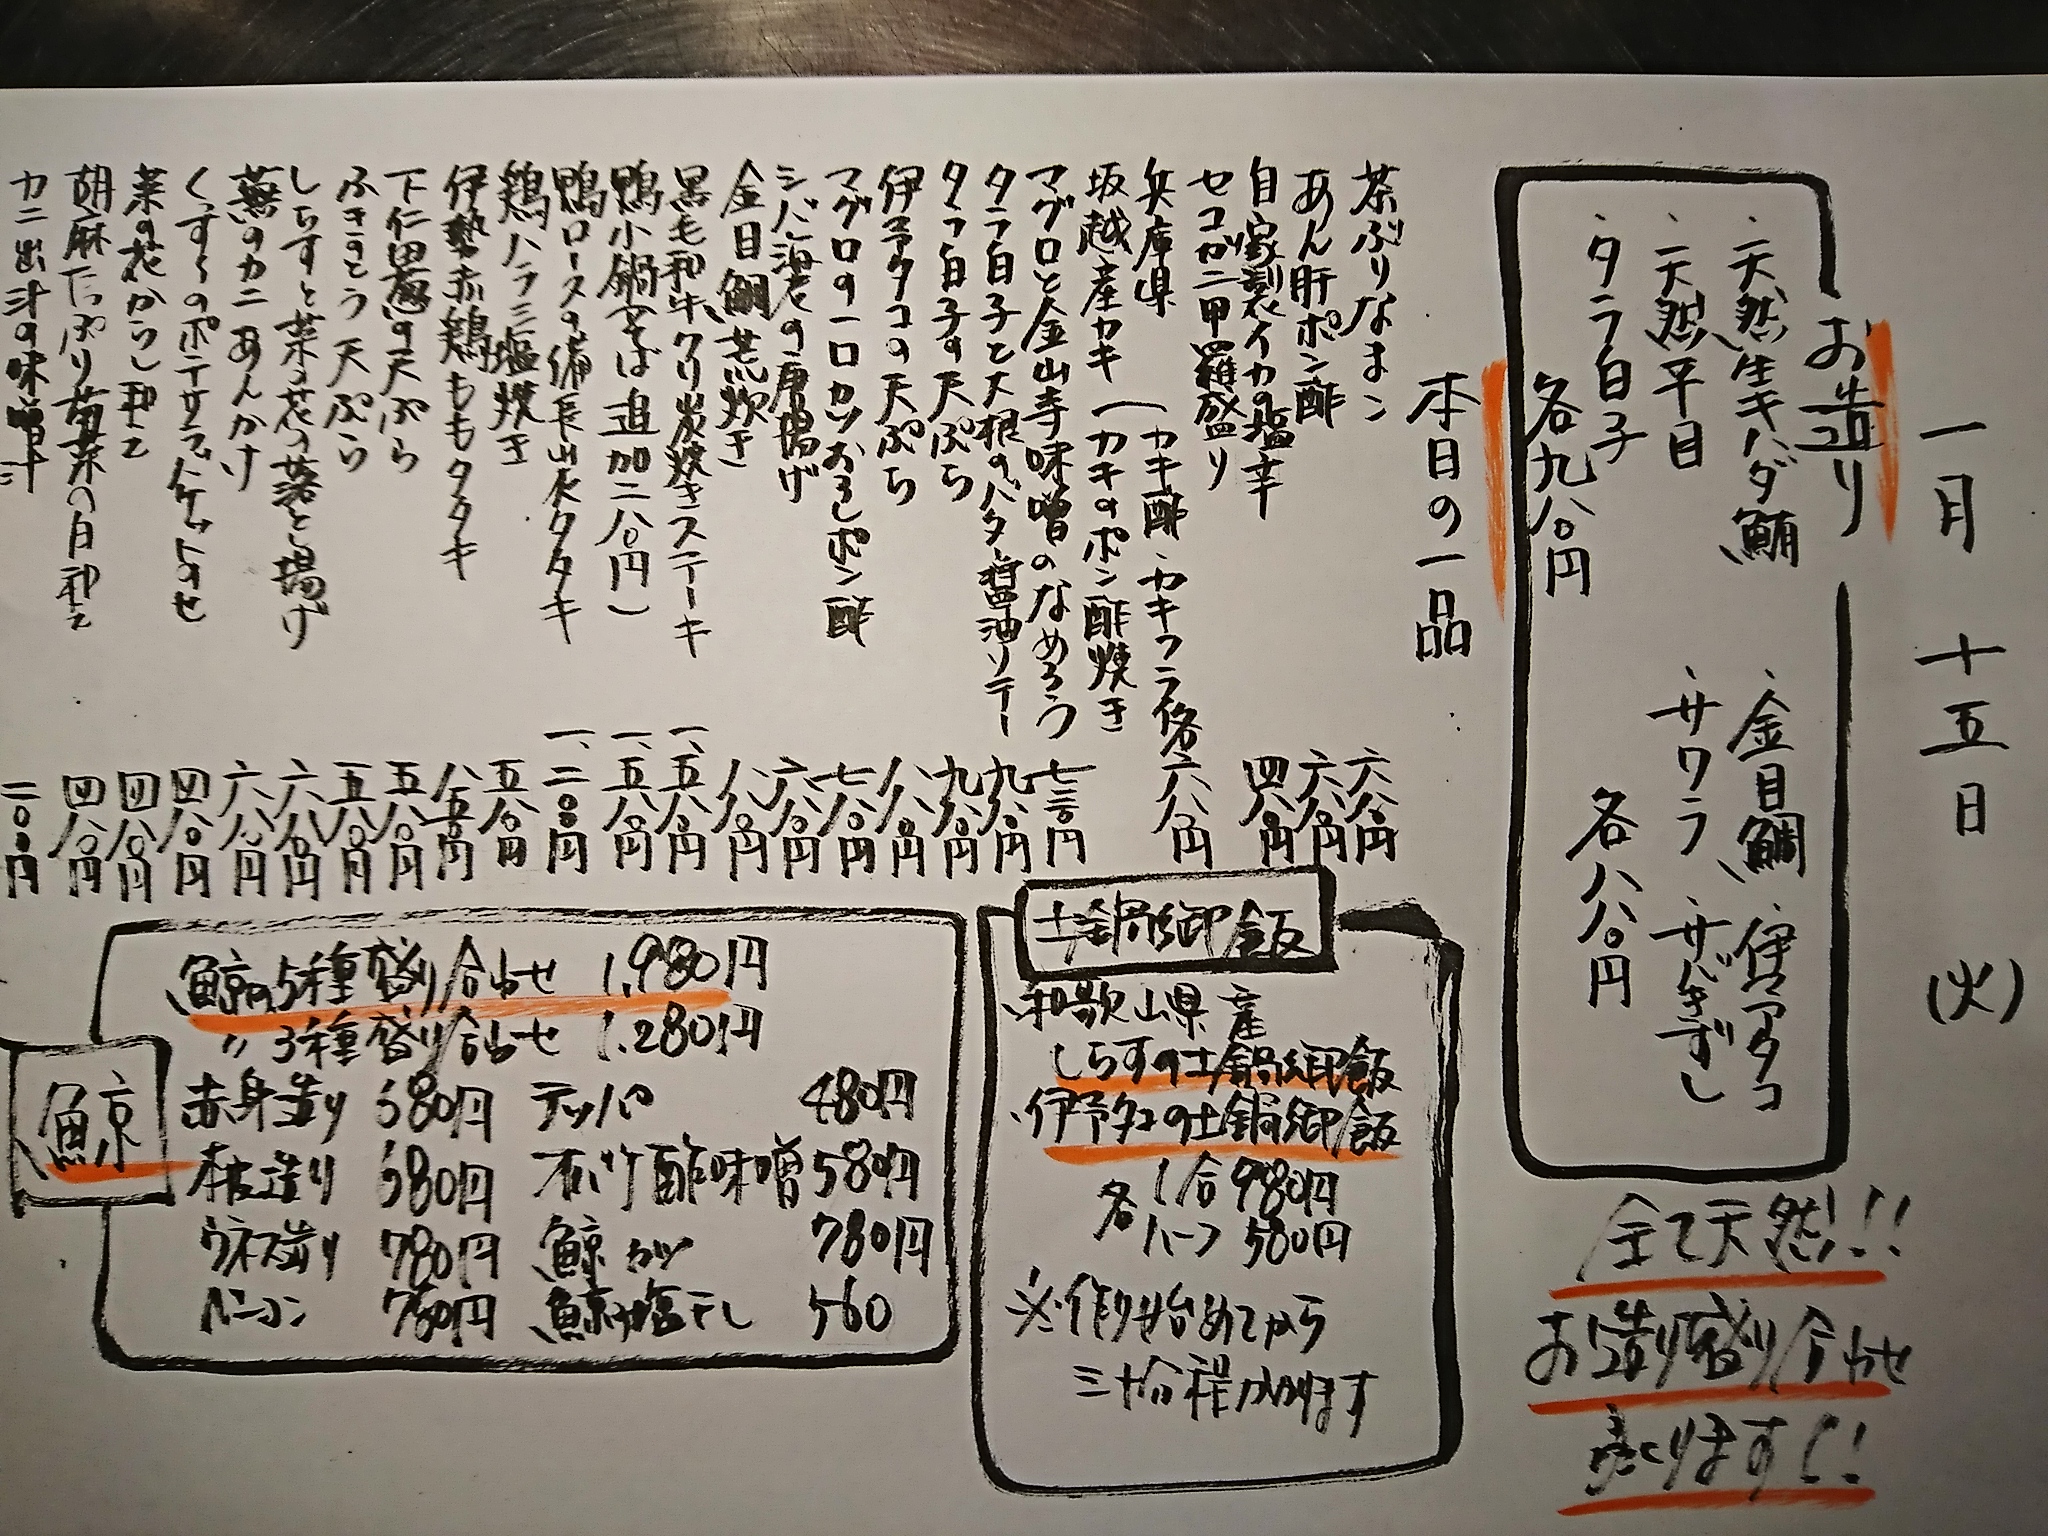 一月 十五日 (火)
お造り
・天然生キハダ鮪
・金目鯛
・伊予タコ
・天然平目
・サワラ
・サバきずし
・タラ白子
各九八〇円
各八八〇円
全て天然!!
お造り盛り合わせ
売ります!!
本日の一品
茶ぶりなまこ 六八〇円
あん肝ポン酢 六八〇円
自家製イカの塩辛 四八〇円
セコガニ甲羅盛り
兵庫県
坂越産カキ
(カキ酢・カキフライ 各六八〇円
(カキのポン酢焼き
マグロと金山寺味噌のなめろう 七三〇円
タラ白子と大根のバタ醤油ソテー 九八〇円
タラ白子の天ぷら 九八〇円
伊予タコの天ぷら 八八〇円
マグロの一口カツおろしポン酢 七八〇円
シバ海老の唐揚げ 六八〇円
金目鯛荒炊き 八八〇円
黒毛和牛クリ炭焼きステーキ 一、五八〇円
鴨小鍋(そば追加二八〇円) 一、五八〇円
鴨ロースの備長山水タタキ 一、二〇〇円
鶏ハラミ塩焼き 五八〇円
伊勢赤鶏ももタタキ 八五〇円
下仁田葱の天ぷら 五八〇円
ふきのとう天ぷら 五八〇円
しらすと菜の花の落とし揚げ 六八〇円
蕪のカニあんかけ 六八〇円
くずしのポテサラ 四八〇円
菜の花からし和え 四八〇円
胡麻たっぷり菊菜の白和え 四八〇円
カニ出汁の味噌汁 二〇〇円
土鍋御飯
・和歌山県産
しらすの土鍋御飯
・伊予タコの土鍋御飯
各 1合 980円
ハーフ 580円
※作り始めてから
三十分程かかります
鯨
鯨の5種盛り合わせ 1,980円
〃 3種盛り合わせ 1,280円
赤身造り 580円 テッパ 480円
本皮造り 580円 オバケ酢味噌 580円
ウネス造り 780円 鯨カツ 780円
ベーコン 780円 鯨の塩干し 560